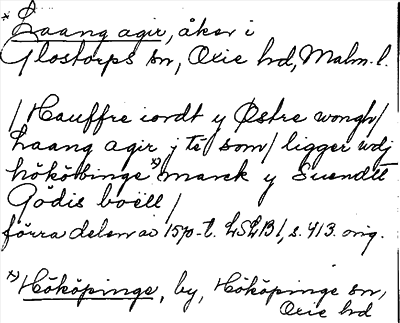 * Laang agir, åker i
Glostorps sn, Oxie hd, Malm. l.
/Hauffre iordt y Østre wongh/
Laang agir j té som/ ligger wdj
hököbinge *) marck y Suendtt
Gödis boëll /
förra delen av 1570-t. LSLB1, s. 413. orig.
*) Hököpinge, by, Hököpinge sn,
Oxie hd